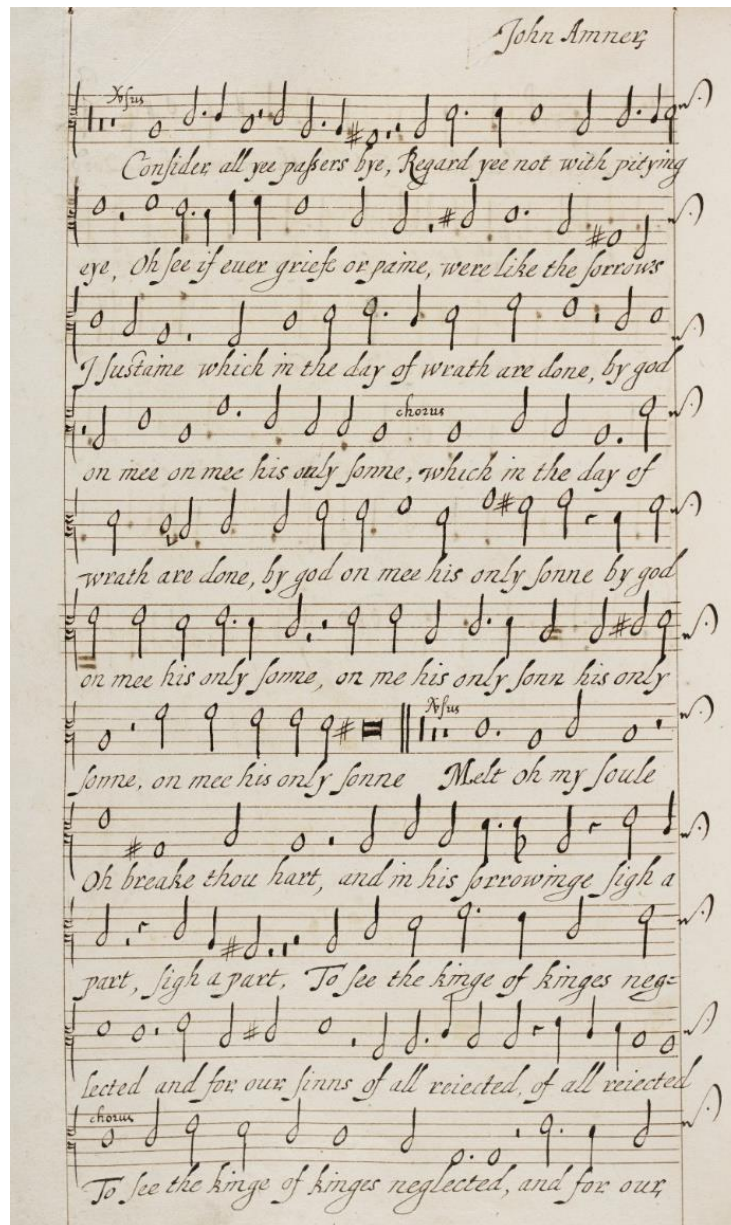 John Amner,
Versus
Consider, all yee passers bye, Regard yee not with pitying
eye, Oh see if euer griefe or paine, were like the sorrows
I sustaine which in the day of wrath are done, by god
chorus
on mee on mee his only sonne, which in the day of
wrath are done, by god on mee his only sonne by god
on mee his only sonne, on me his only sonn his only
Versus
sonne, on mee his only sonne Melt oh my soule
Oh breake thou hart, and in his sorrowinge sigh a
part, sigh a part, To see the kinge of kinges neg=
lected and for our sinns of all reiected, of all reiected
chorus
To see the kinge of kinges neglected, and for our